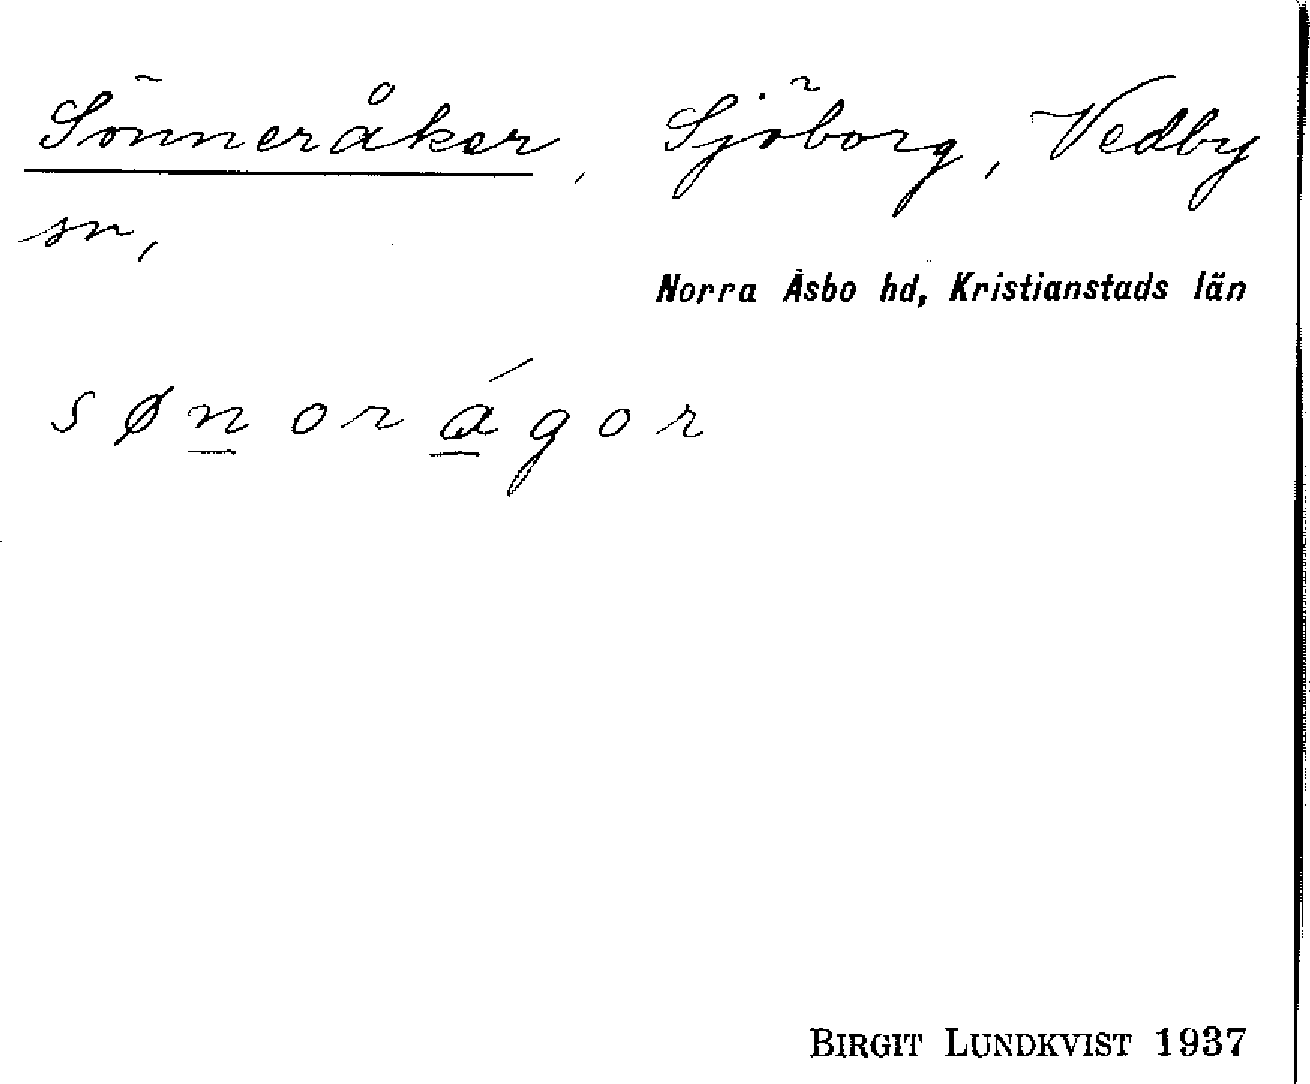 Sönneråker, Sjöborg, Vedby
sn,
Norra Åsbo hd, Kristianstads län
s ø n o r á g o r
BIRGIT LUNDKVIST 1937